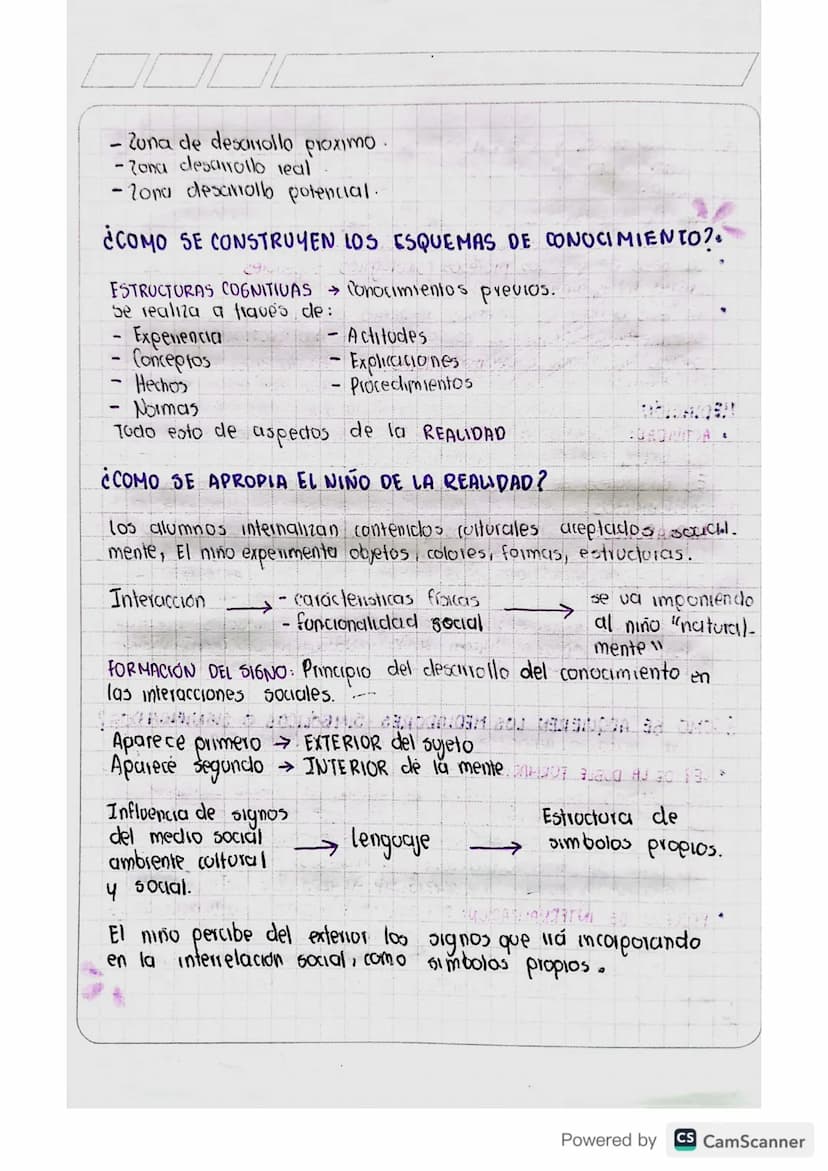 - Zona de desarrollo proximo.
- Zona desarrollo real
- Zona desarrollo potencial.
¿COMO SE CONSTRUYEN LOS ESQUEMAS DE CONOCIMIENTO?
ESTRUCTURAS COGNITIVAS → Conocimientos previos.
Se realiza a través de:
- Experiencia - Actitudes
- Conceptos - Explicaciones
- Hechos - Procedimientos
- Normas
Todo esto de aspectos de la REALIDAD
¿COMO SE APROPIA EL NIÑO DE LA REALIDAD?
los alumnos internalizan contenidos culturales aceptados social-
mente, El niño experimenta objetos, colores, formas, estructuras.
Interacción → - características físicas → se va imponiendo
- funcionalidad social al niño "natural-
mente"
FORMACIÓN DEL SIGNO: Principio del desarrollo del conocimiento en
las interacciones sociales.
Aparece primero → EXTERIOR del sujeto
Aparece segundo → INTERIOR de la mente.
Influencia de signos Estructura de
del medio social → lenguaje → simbolos propios.
ambiente cultural
y social.
El niño percibe del exterior los signos que irá incorporando
en la interrelación social, como simbolos propios.
Powered by CS CamScanner